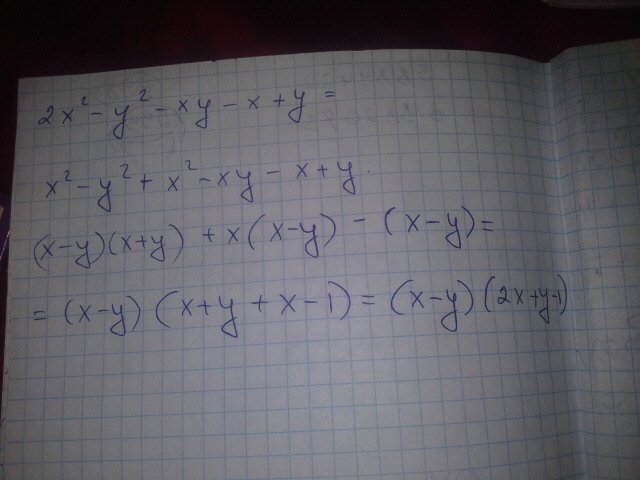 2x² - y² - xy - x + y =
x² - y² + x² - xy - x + y.
(x-y)(x+y) + x(x-y) - (x-y) =
= (x-y)(x+y+x-1) = (x-y)(2x+y-1)